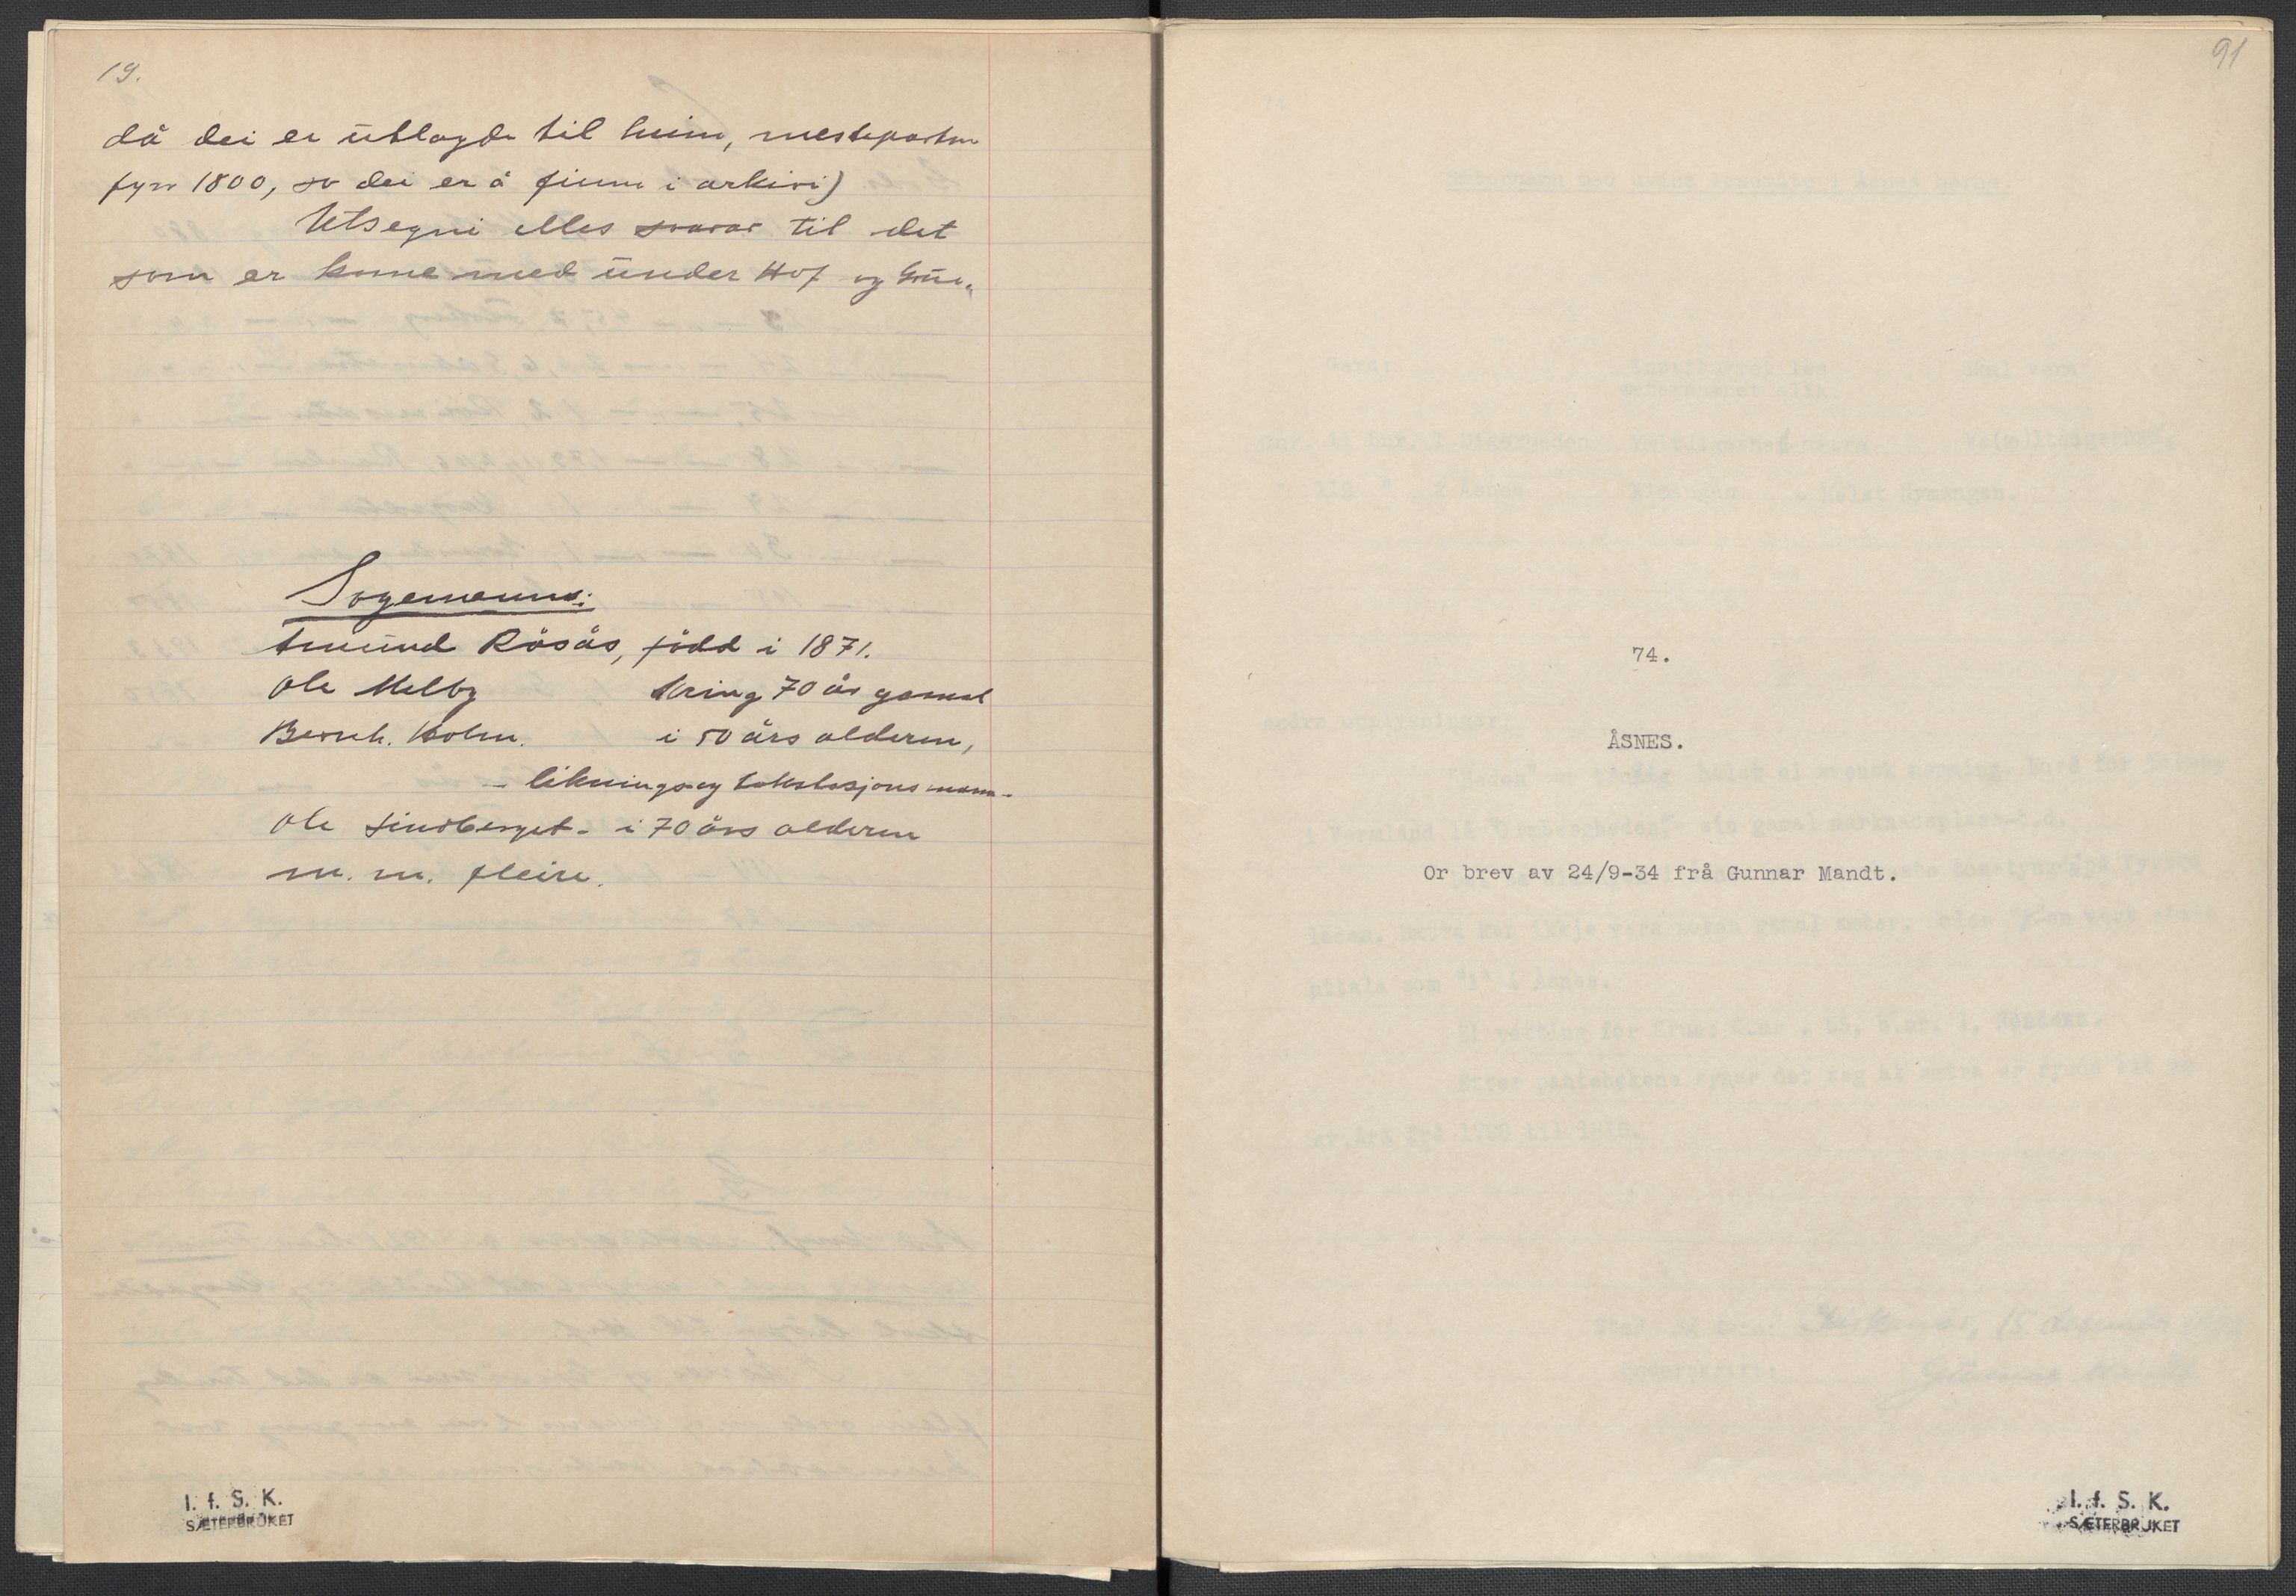 19.
då dei er utlagde til heim, mesteparten
fyrr 1800, so dei er å finne i arkivi)
Utsegni elles svarar til det
som er kome med under Hof og Grue.
Sogemenn:
Amund Råsås, född i 1871.
Ole Melby kring 70 år gamal
Bernh. Holm. i 50 års alderen,
- liknings og takstasjons mann.
Ole Lindberget - i 70 års alderen
m. m. fleire.
I. f. S. K.
SÆTERBRUKET
91
74.
ÅSNES.
Or brev av 24/9-34 frå Gunnar Mandt.
I. f. S. K.
SÆTERBRUKET